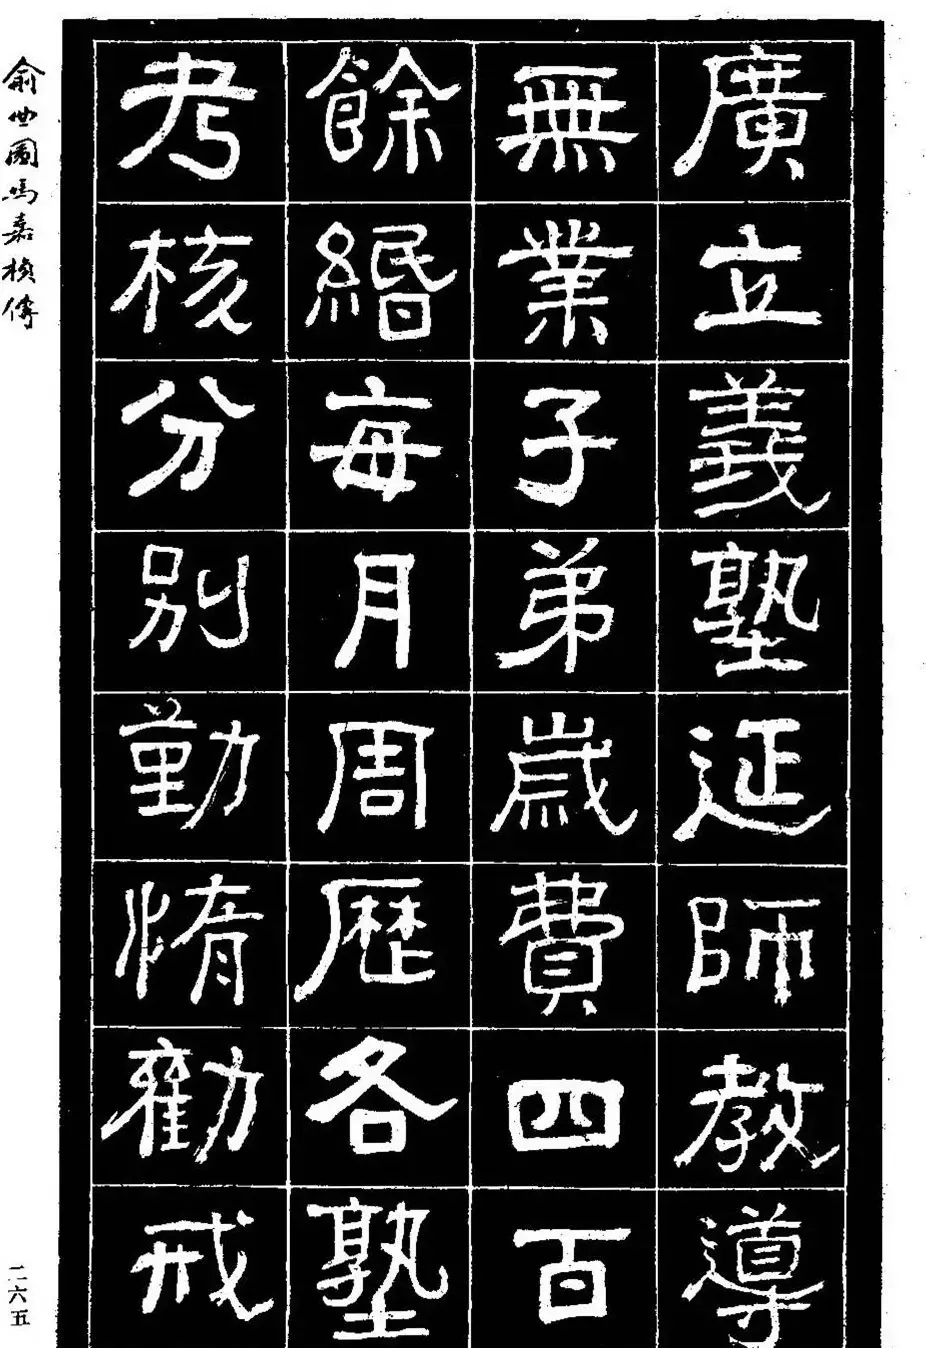 廣立義塾延師教導
無業子弟歲費四百
餘緡每月周歷各塾
考核分別勤惰勸戒
俞曲園馮嘉楨傳
二六五